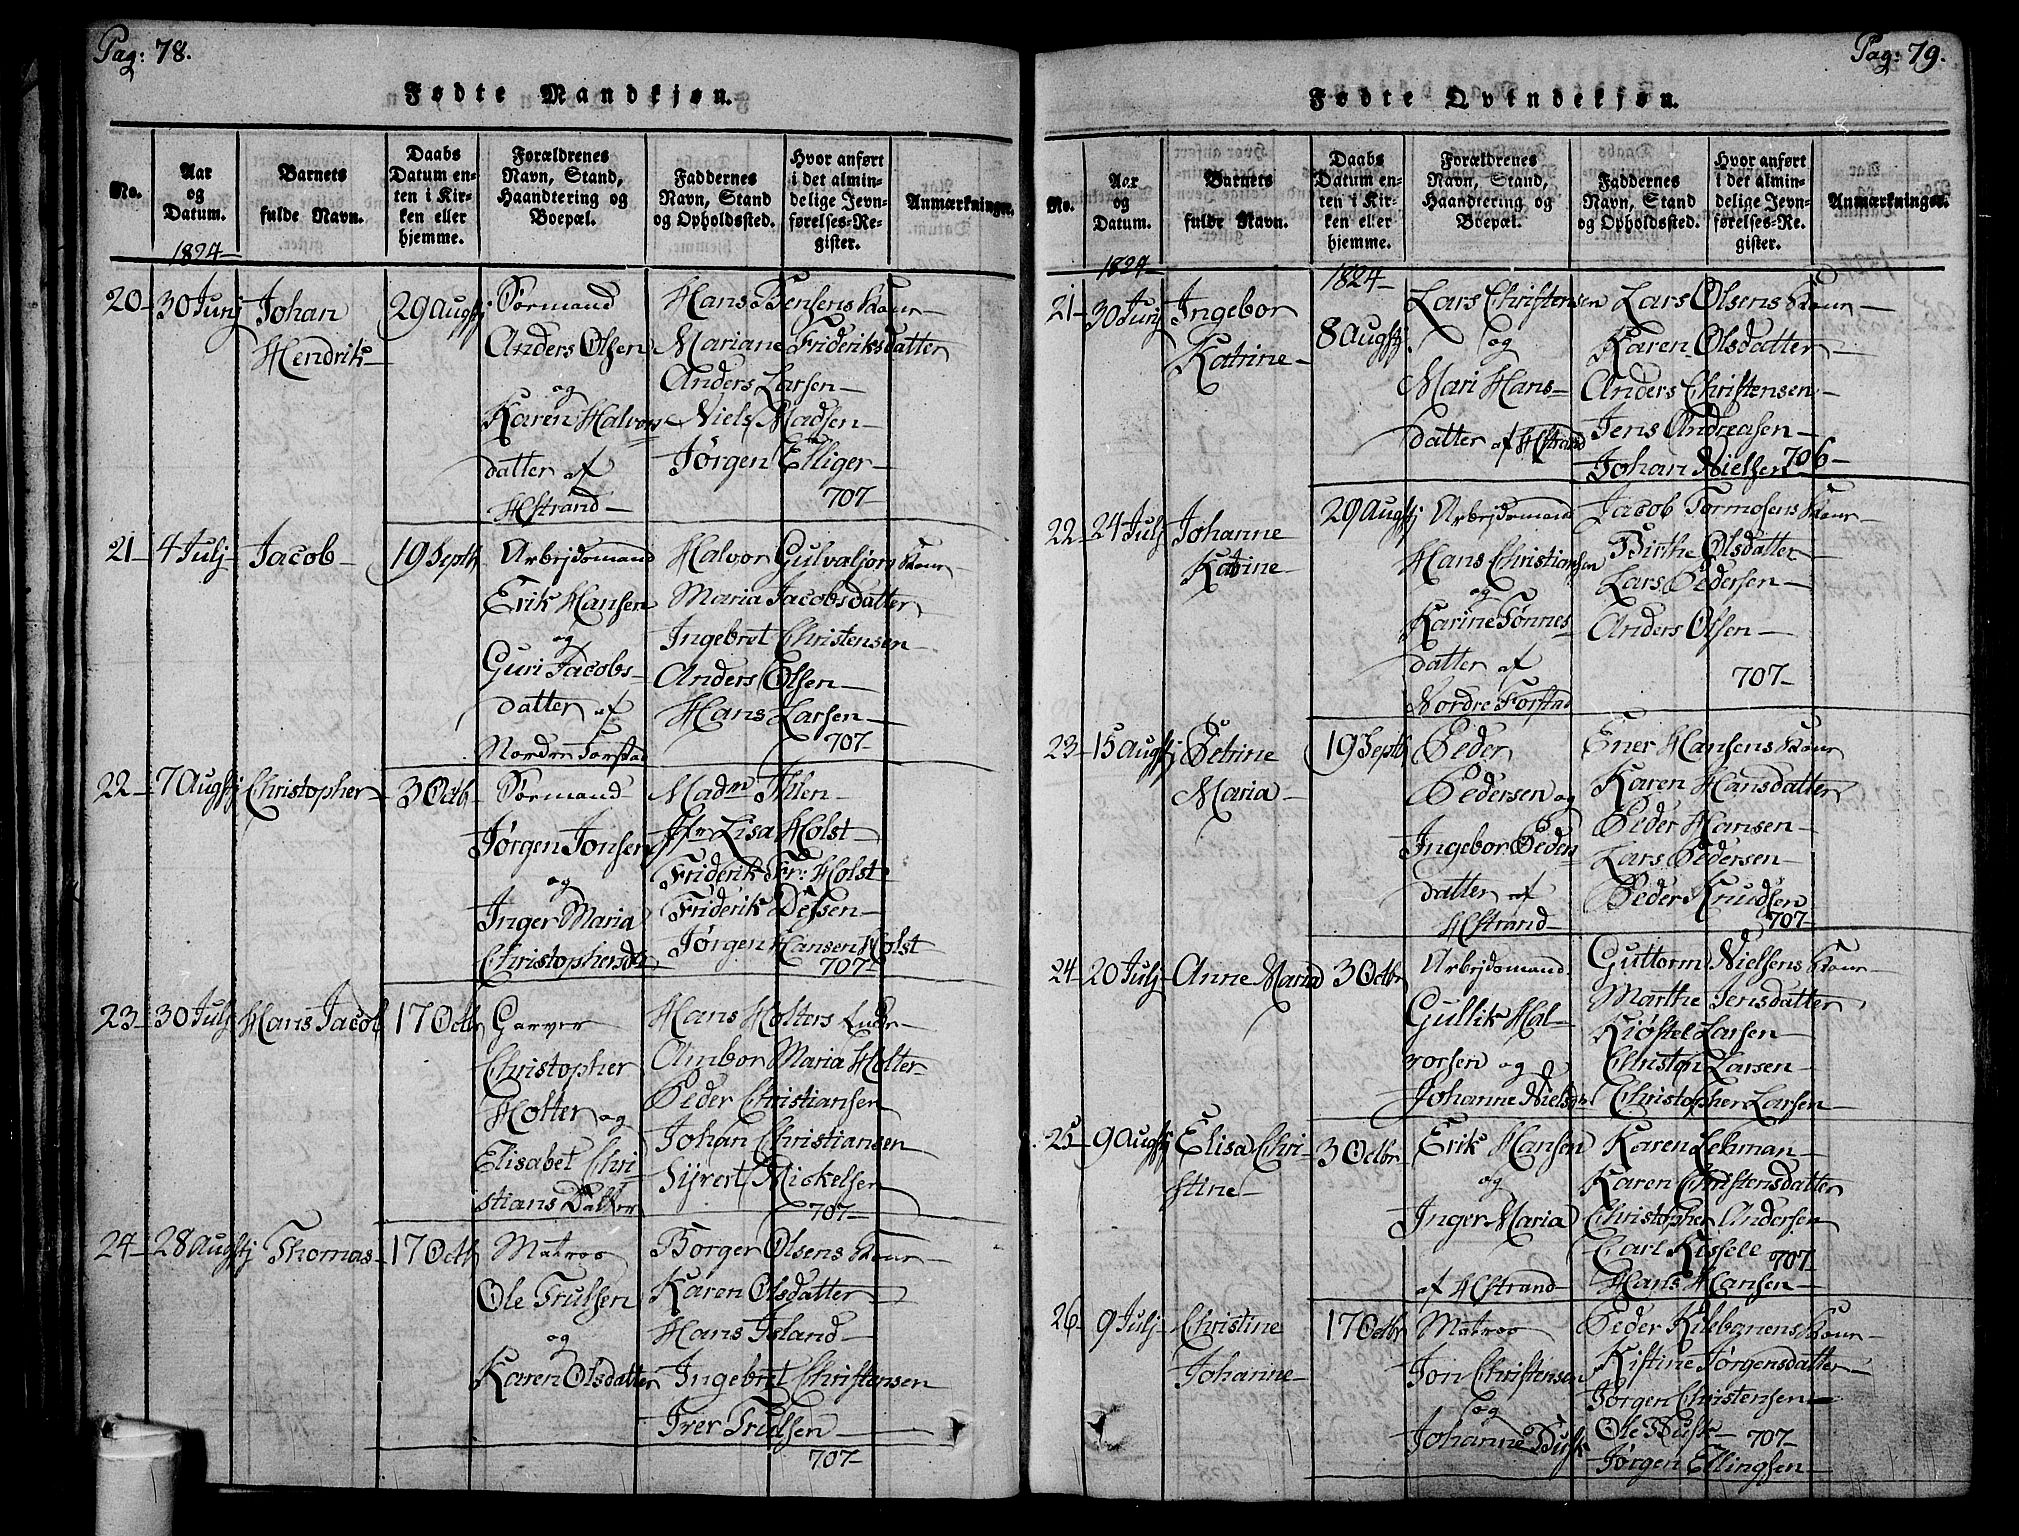 Pag: 78.
Fødte Mandkjøn.
No.
Aar
og
Datum.
Barnets
fulde Navn.
Daabs
Datum en-
ten i Kir-
ken eller
hjemme.
Forældrenes
Navn, Stand,
Haandtering og
Boepæl.
Faddernes
Navn, Stand
og Opholdssted.
Hvor anført
i det almin-
delige Jevn-
førelses-Re-
gister.
Anmærkninger.
1824-
20- 30 Junj
Johan
Hendrik-
29 Augstj
Sørmand
Anders Olsen
og
Karen Halvors
datter af
Hstrand-
Hans Jensens Kour-
Mariane Frideriksdatter
Anders Larsen-
Niels Madsen-
Jørgen Elliger-
707-
21- 4 Julj-
Jacob-
19 Septb
Arbejdsmand
Erik Hansen
og
Guri Jacobs-
datter af
Nordre Forstad
Halvor Gulvaljors Kour-
Maria Jacobsdatter
Ingebret Christensen
Anders Olsen-
Hans Larsen-
707-
22- 7 Augstj
Christopher
3 Octb-
Sørmand
Jørgen Jonsen
og
Inger Maria
Christophersdtr
Madm Ihlen-
Jfr Lisa Holst-
Friderik Fr: Holst-
Friderik Delsen-
Jørgen Hansen Holst
707-
23- 30 Julj
Hans Jacob
17 Octbr
Garver
Christopher
Holter og
Elisabet Chri-
stians Datter
Hans Holters
Ambor Maria Holter-
Peder Christiansen
Johan Christiansen
Syvert Mickelsen
707-
24- 28 Augstj
Thomas-
17 Octb
Matros
Ole Trulsen
og
Karen Olsdatter
Borger Olsens Kour-
Karen Olsdatter-
Hans Island-
Ingebret Christensen
Iver Trulsen-
707-
Pag: 79.
Fødte Qvindekjøn.
No.
Aar
og
Datum.
Barnets
fulde Navn.
Daabs
Datum en-
ten i Kir-
ken eller
hjemme.
Forældrenes
Navn, Stand,
Haandtering og
Boepæl.
Faddernes
Navn, Stand
og Opholdssted.
Hvor anført
i det almin-
delige Jevn-
førelses-Re-
gister.
Anmærkninger.
1824-
1824-
21- 30 Junj
Ingebor
Katrine-
8 Augstj
Lars Christensen
og
Mari Hans-
datter af Hstrand
Lars Olsens Kour-
Karen Olsdatter-
Anders Christensen-
Jens Andreasen-
Johan Nielsen 706-
22- 24 Julj
Johanne
Katrine-
29 Augstj
Arbejdsmand
Hans Christiansen
og
Karine Tønnes
datter af
Nordre Forstad
Jacob Tormosens Kour-
Birthe Olsdatter-
Lars Pedersen-
Anders Olsen-
707-
23- 15 Augstj
Petrine
Maria-
19 Septb
Peder
Pedersen og
Ingebor Peders
datter af
Hstrand-
Ener Hansens Kour
Karen Hansdatter
Peder Hansen-
Lars Pedersen-
Peder Knudsen
707-
24- 20 Julj-
Anne Maria
3 Octbr
Arbejdsmand
Gullik Hal-
vorsen og
Johanne Nielsdr
Guttorm Nielsens Kour-
Marthe Jensdatter
Kiøstel Larsen-
Christen Larsen-
Christopher Larsen-
25- 9 Augstj
Elisa Chri-
stine-
3 Octbr
Erik Hansen
og
Inger Maria
af Hstrand-
Karen Lehman-
Karen Christensdatter
Christopher Andersen
Carl Kissele 707-
Hans Hansen-
26- 9 Julj-
Christine
Johanne-
17 Octbr
Matros
Jon Christensen
og
Johanne Busk
Peder Kilebanens Kour-
Kistine Jørgensdatter
Jørgen Christensen-
Ole Busk- 707-
Jørgen Ellingsen-